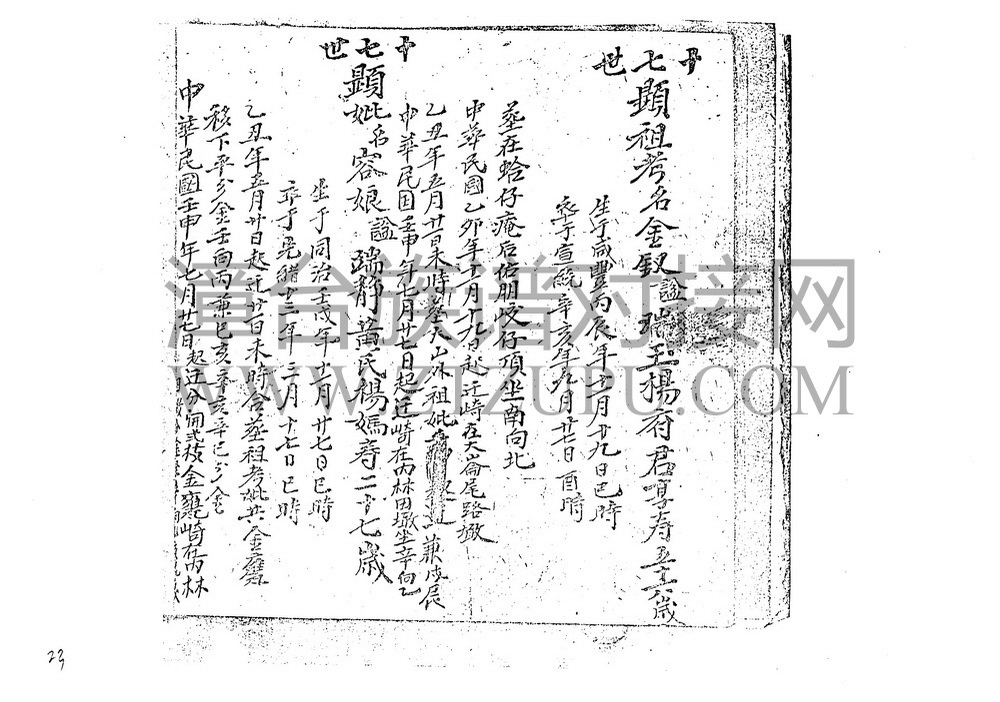 十七世
顯祖考名金釵諡瑞玉楊府君享壽五十六歲
生于咸豐丙辰年十一月十九日巳時
卒于宣統辛亥年九月廿七日酉時
墓在蛤仔庵后佑朋崎仔項坐南向北
中華民國乙卯年十月十九日起迁崎在大崙尾路墘
乙丑年五月廿一日未時墓大山外祖妣 兼戌辰
中華民国壬申年七月廿七日起迁崎在内林田墩坐辛向乙
十七世
顯妣名容娘諡瑞靜黃氏楊媽壽二十七歲
生于同治壬戌年十一月廿七日巳時
卒于光緒十三年二月十七日巳時
乙丑年五月廿日起迁廿一日未時合墓祖考妣共金甕
移下平分金壬向丙兼巳亥辛亥辛巳分金
中華民國壬申年七月廿七日起迁分開弍枝金甕崎在内林
漳台族谱对接网
WWW.ZTZUPU.COM
23